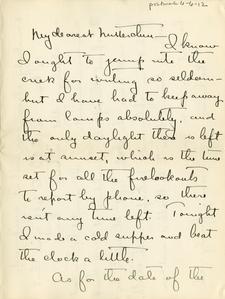 postmark 6-6-12
My dearest Mütterchen—
I know
I ought to jump into the
creek for writing so seldom—
but I have had to keep away
from lamps absolutely, and
the only daylight there is left
is at sunset, which is the time
set for all the fire lookouts
to report by phone, so there
isn't any time left. Tonight
I made a cold supper and beat
the clock a little.
As for the date of the